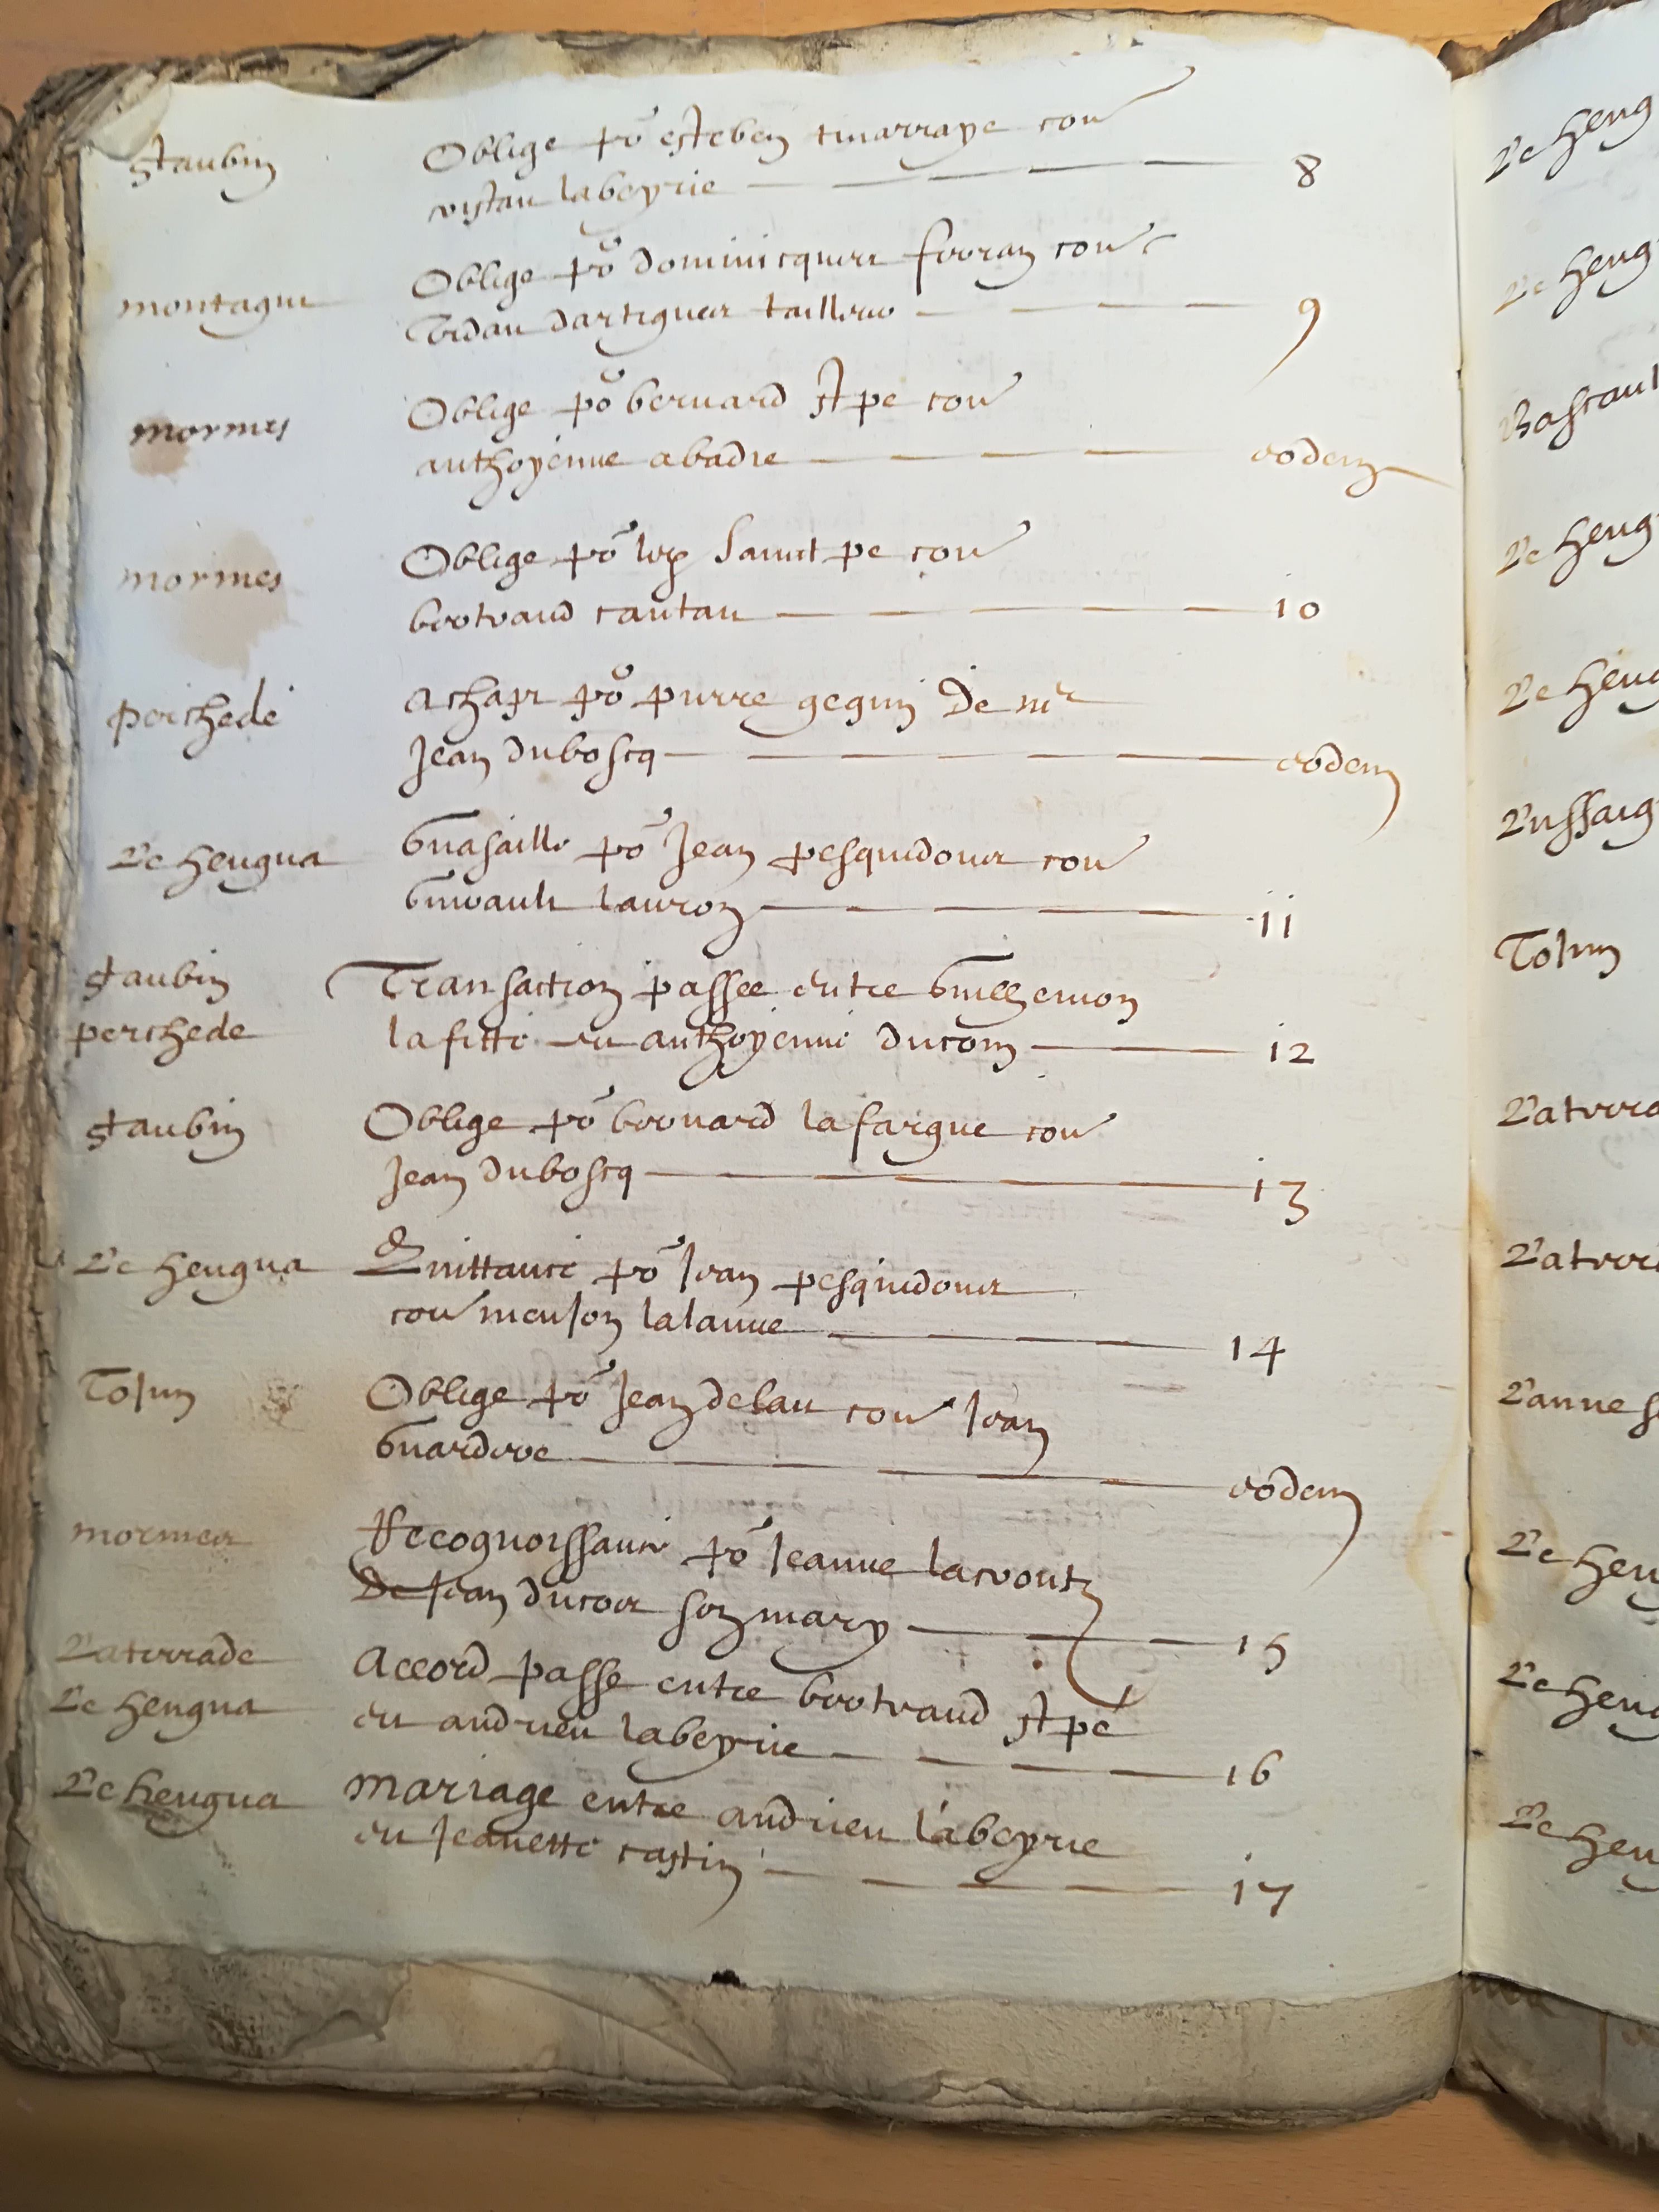 St aubin Oblige po^r esteben tinarraye con^e
costau labeyrie 8
montagut Oblige po^r dominicques fooran con^e
Jordan dartigues tailleur 9
mormes Oblige po^r bernard St pe con^e
anthoyenne abadie eodem
mormes Oblige po^r loys Sainct pe con^e
bertrand cantau 10
perchede Achapt po^r pierre gegun De m^r
Jean duboscq eodem
Le heugua Guasaille po^r Jean pesquidoux con^e
Guirault lauron 11
St aubin Transaction passee entre Guilhemon
perchede lafitte et anthoyenne ducom 12
St aubin Oblige po^r bernard lafargue con^e
Jean duboscq 13
Le heugua Quittance po^r Jean pesquidoux
con^e menjon lalanne 14
Tojun Oblige po^r Jean delau con^e Jean
Guardere eodem
mormes Recognoissance po^r Jeanne lacroutz
De Jean ducos son mary 15
Laterrade Accord passe entre bertrand St pe
Le heugua et andrieu labeyrie 16
Le heugua Mariage entre andrieu labeyrie
et Jeanette castin 17
Le heug
Le heug
Bascaul
Le heug
Le heug
Lussaig
Tojun
Laterra
Laterra
Lanne s
Le heu
Le heug
Le heu